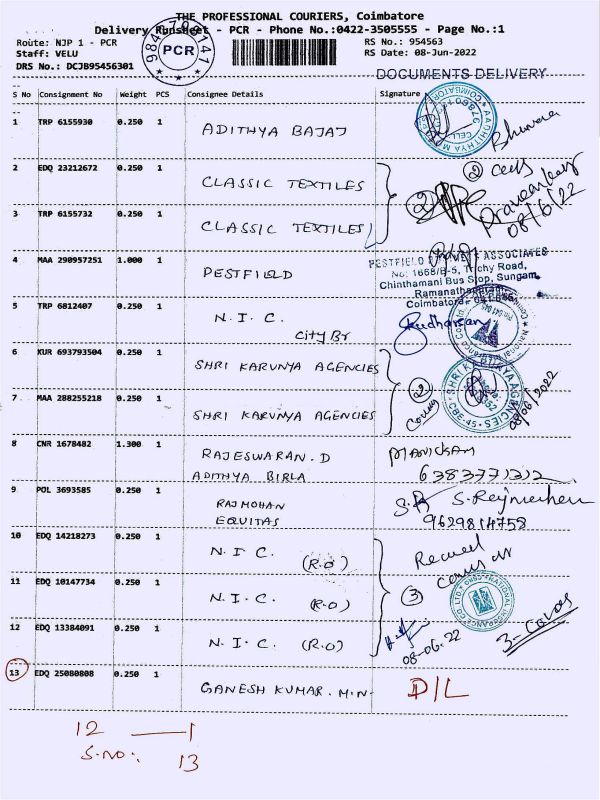 THE PROFESSIONAL COURIERS, Coimbatore
Delivery Runsheet - PCR - Phone No.:0422-3505555 - Page No.:1
Route: NJP 1 - PCR
Staff: VELU
DRS No.: DCJB95456301
PCR
RS No.: 954563
RS Date: 08-Jun-2022
DOCUMENTS DELIVERY
S No Consignment No Weight PCS Consignee Details Signature
1 TRP 6155930 0.250 1 ADITHYA BAJAJ
2 EDQ 23212672 0.250 1 CLASSIC TEXTILES
2
3 TRP 6155732 0.250 1 CLASSIC TEXTILES
2
08/6/22
4 MAA 290957251 1.000 1 PESTFIELD
PESTFIELD ASSOCIATES
No: 1668/B-5, Trichy Road,
Chinthamani Bus Stop, Sungam,
Ramanathapuram,
Coimbatore
5 TRP 6812407 0.250 1 N.I.C.
City Br
6 KUR 693793504 0.250 1 SHRI KARUNYA AGENCIES
2
7 MAA 288255218 0.250 1 SHRI KARUNYA AGENCIES
08/06/2022
8 CNR 1678482 1.300 1 RAJESWARAN.D
ADITHYA BIRLA
MANICKAM
6383771312
9 POL 3693585 0.250 1 RAJMOHAN
EQUITAS
9629814758
10 EDQ 14218273 0.250 1 N.I.C. (R.O)
11 EDQ 10147734 0.250 1 N.I.C. (R.O)
3
12 EDQ 13384091 0.250 1 N.I.C. (R.O)
08-06.22
13 EDQ 25080808 0.250 1 GANESH KUMAR.M.N.
D/L
12 — 1
S.NO: 13